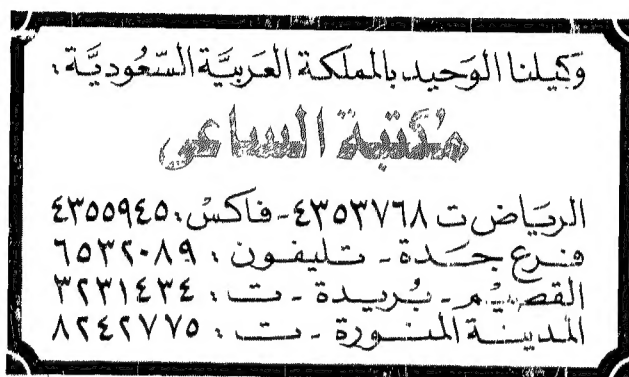 وَكيلنا الوَحيد بالمملكة العَربيَّة السّعُوديَّة :
مكتبة الساعي
الريَاض ت ٤٣٥٣٧٦٨ - فاكسْ : ٤٣٥٥٩٤٥
فرع جدة - تليفون : ٦٥٣٢٠٨٩
القصيم - بُريدة - ت : ٣٢٣١٤٣٤
المدينة المنورة - ت : ٨٢٤٢٧٧٥